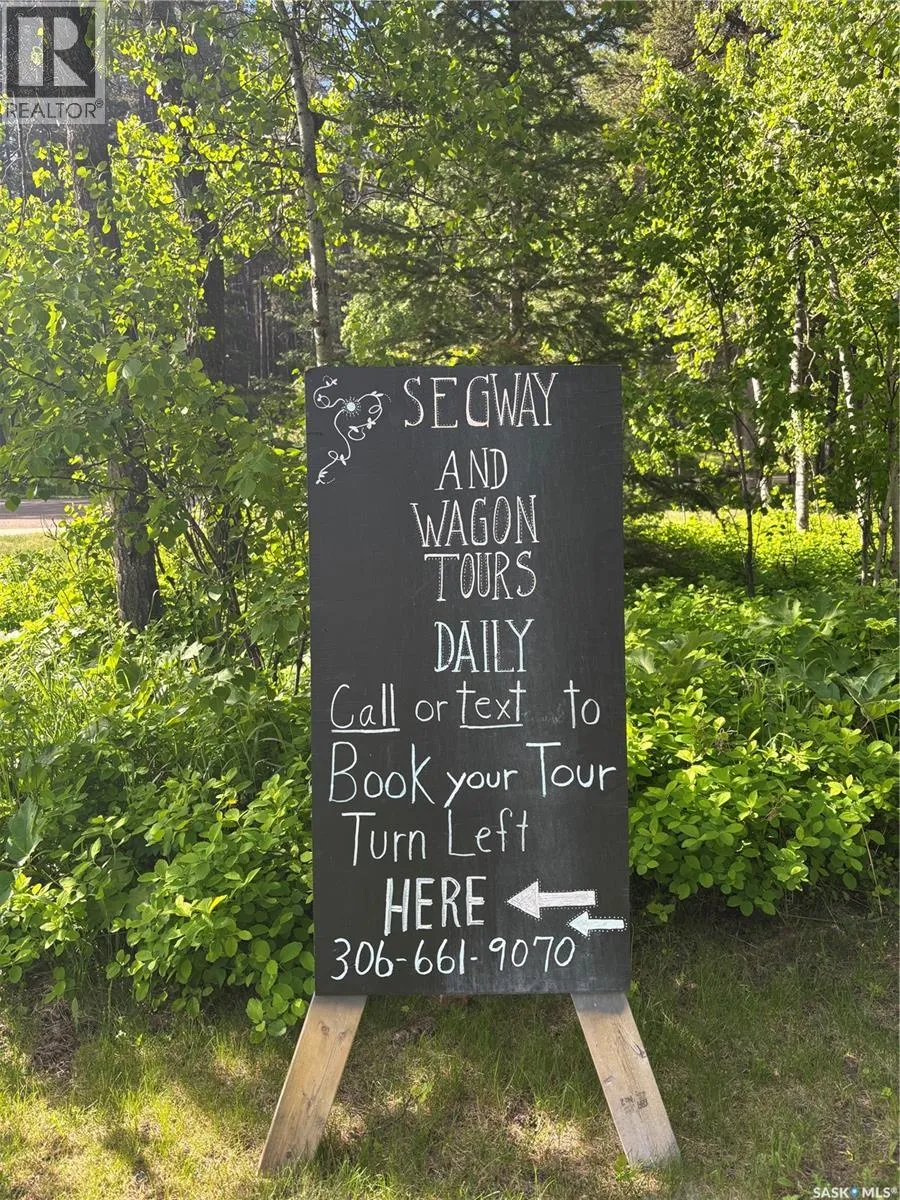 R
REALTOR®
SEGWAY
AND
WAGON
TOURS
DAILY
Call or text to
Book your Tour
Turn Left
HERE
306-661-9070
SASK MLS®